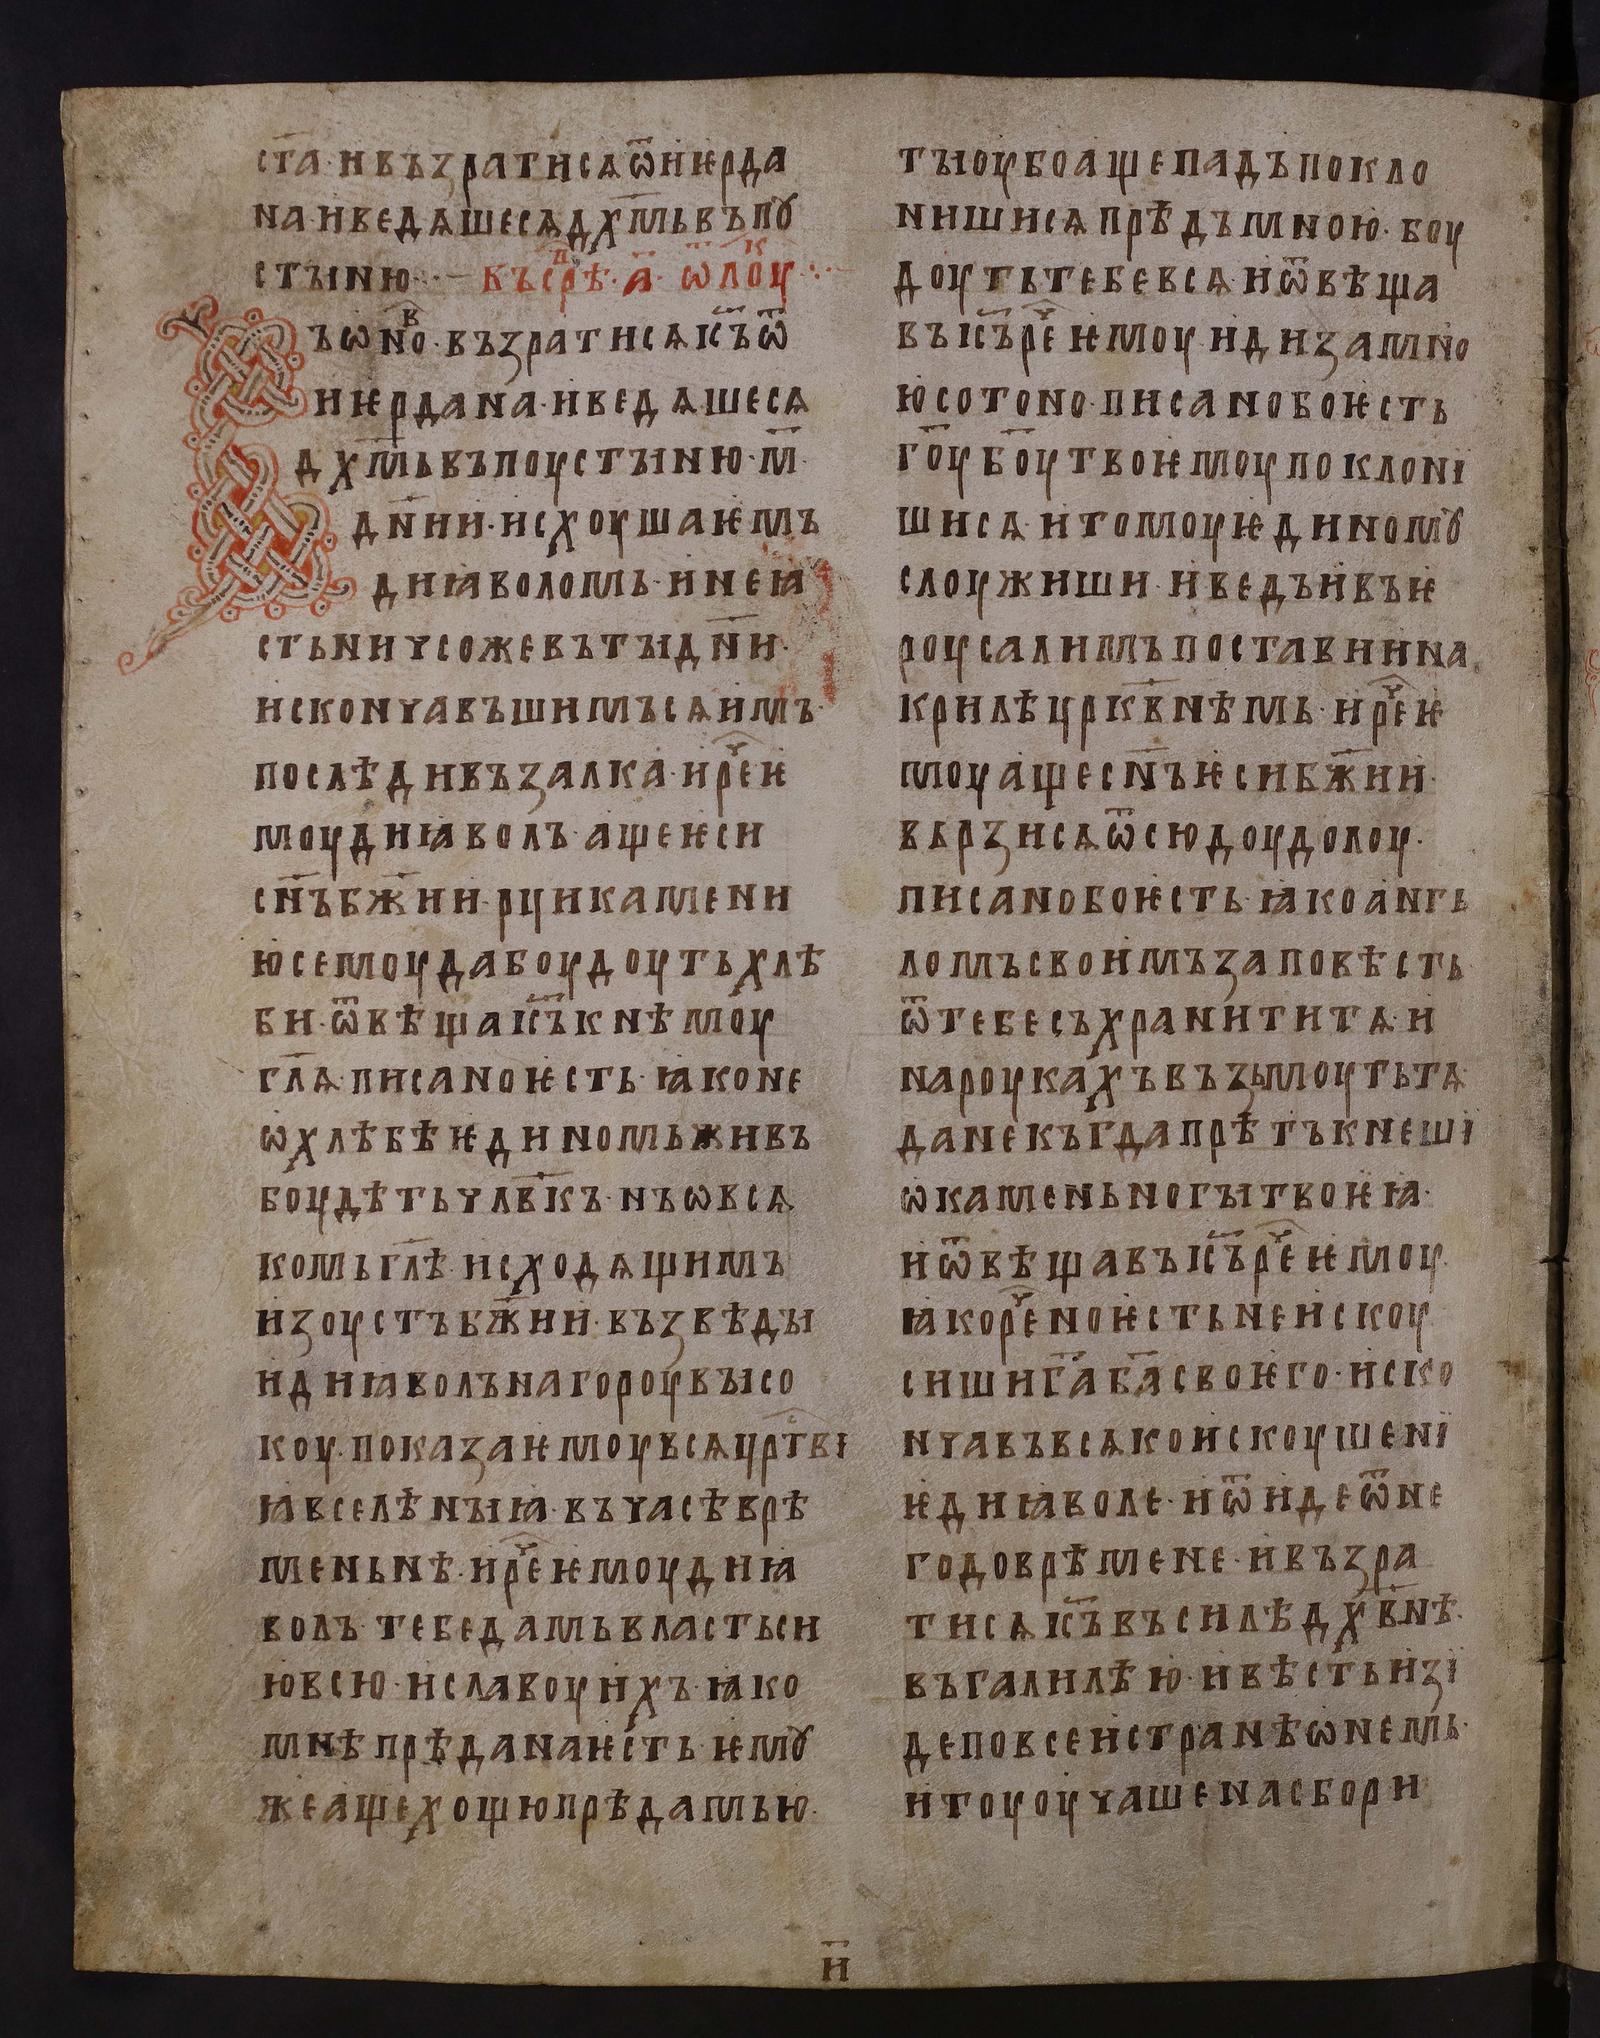 ста· и възратисѧ ѿ иѥрда
на· и ведѧшесѧ дх҃мь въ пꙋ
стыню·:— въ срⷣѣ· а҃· ѿ лоуⷦ҇·:·—
Въ ѡноⷡ· възратисѧ іс҃ъ ѿ
иѥрдана· и ведѧшесѧ
дх҃мь въ поустыню· м҃
дн҃ии· исхоушаѥмъ
диꙗволомь· и не ꙗ
сть ничсоже въ ты дн҃и·
исконьчавъшимъсѧ имъ·
послѣди възалка· и реⷱ ѥ
моу диꙗволъ· аще ѥси
сн҃ъ бж҃ии· рци камени
ю семоу да боудоуть хлѣ
би· ѿвѣща іс҃ъ к нѣмоу
гл҃ѧ· писано ѥсть· ꙗко не
ѡ хлѣбѣ ѥдиномь живъ
боудѣть члв҃къ· нъ ѡ всѧ
комь гл҃ѣ исходѧщимъ
изоустъ бж҃ии· възвѣды
и диꙗволъ на гороу высо
коу· показа ѥмоу всѧ црⷭ҇тві
ꙗ вселѣныꙗ· въ часѣ врѣ
меньнѣ· и реⷱ ѥмоу диꙗ
волъ· тебе дамь власть си
ю всю· и славоу ихъ· ꙗко
мнѣ прѣдана ѥсть· ѥмꙋ
же аще хощю прѣдамь ю·
ты оубо аще падъ покло
нишисѧ прѣдъ мною· боу
доуть тебе всѧ· и ѿвѣща
въ іс҃ъ реⷱ ѥмоу· иди за мно
ю сотоно· писано бо ѥсть
гоу҃ боу҃ твоѥмоу поклоні
шисѧ· и томоу ѥдиномꙋ
слоужиши· и ведъ и въ ѥ
роусалимъ постави и на
крилѣ црквн҃ѣмь· и реⷱ ѥ
моу аще сн҃ъ ѥси бж҃ии·
вьрзисѧ ѿсюдоу долоу·
писано бо ѥсть· ꙗко ангь
ломъ своимъ заповѣсть
ѿ тебе съхранити тѧ· и
на роукахъ възьмоуть тѧ
да не къгда прѣтъкнеші
ѡ камень ногы твоѥꙗ·
и ѿвѣщавъ іс҃ъ реⷱ ѥмоу·
ꙗко реⷱно ѥсть не искоу
сиши га҃ ба҃ своѥго· иско
нчавъ всѧко искоушені
ѥ диꙗволе· и ѿиде ѿ не
го до врѣмене· и възра
тисѧ іс҃ъ въ силѣ дх҃внѣ·
въ галилѣю· и вѣсть изі
де по всеи странѣ ѡ немь·
и тоу оучаше на сбори
и҃